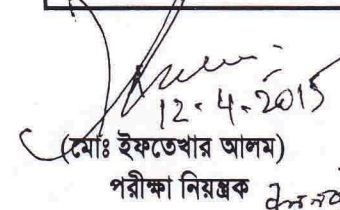 12.4.2015
(মোঃ ইফতেখার আলম)
পরীক্ষা নিয়ন্ত্রক